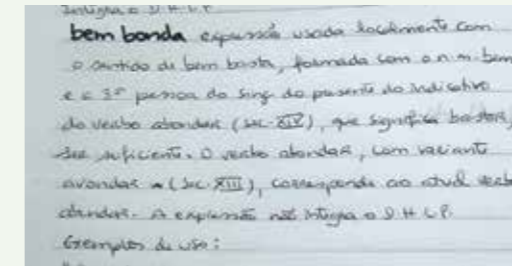 Integra o D.H.L.P.
bem bonda expressão usada localmente com
o sentido de bem basta, formada com o n. m. bem
e a 3ª pessoa do sing. do presente do indicativo
do verbo abondar (séc. XIV), que significa bastar,
ser suficiente. O verbo abondar, com variante
avondar (séc. XIII), corresponde ao atual verbo
abundar. A expressão não integra o D.H.L.P.
Exemplos de uso: